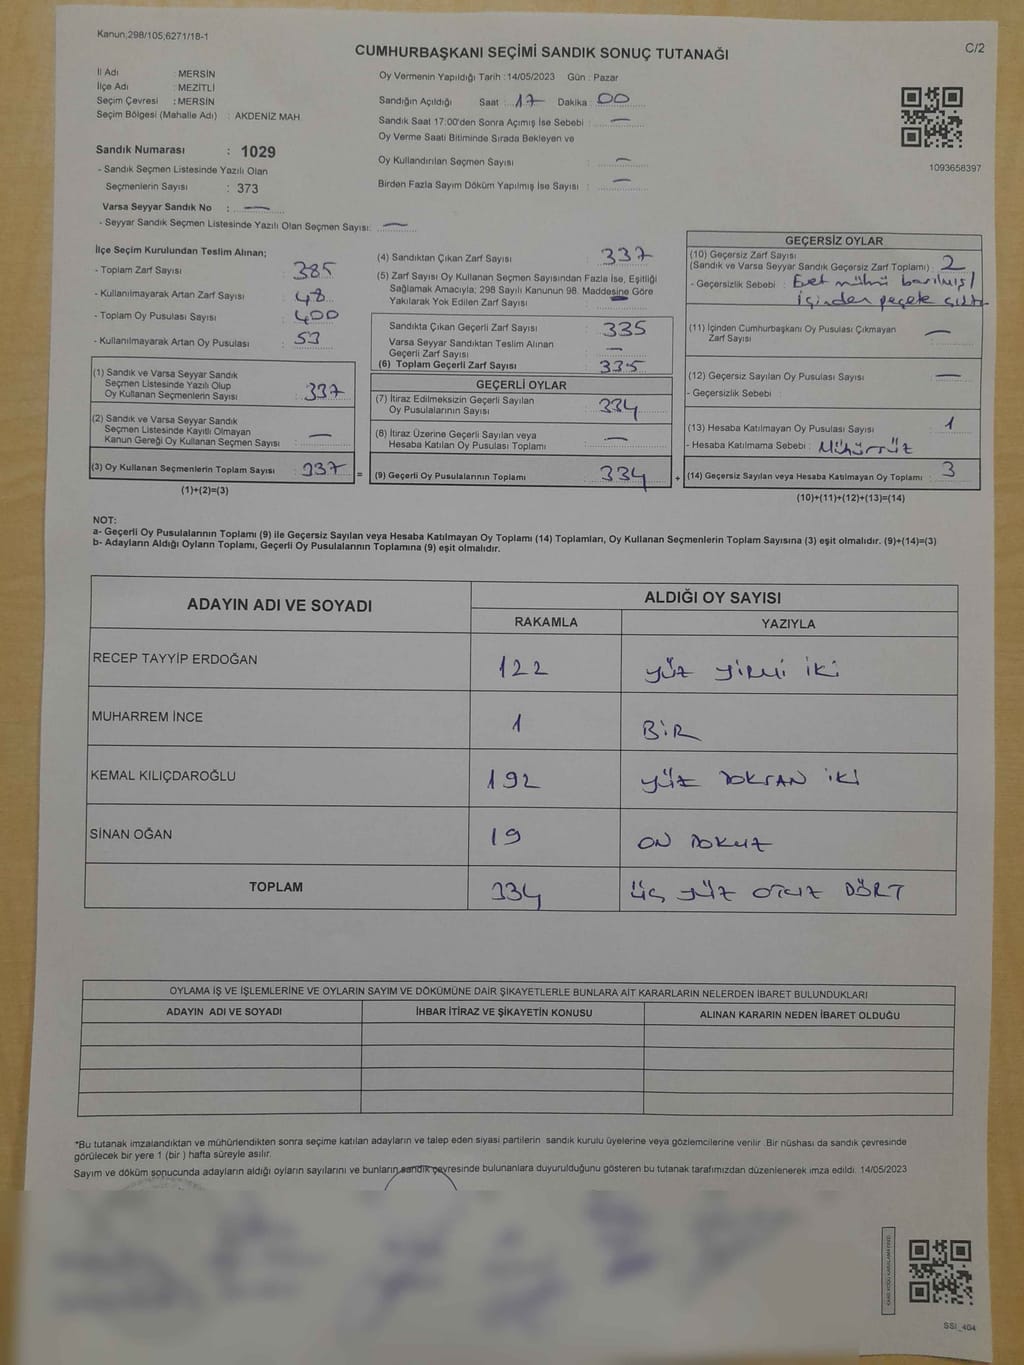 Kanun;298/105,6271/18-1
C/2
CUMHURBAŞKANI SEÇİMİ SANDIK SONUÇ TUTANAĞI
İl Adı : MERSİN
İlçe Adı : MEZİTLİ
Seçim Çevresi : MERSİN
Seçim Bölgesi (Mahalle Adı) : AKDENİZ MAH.
Sandık Numarası : 1029
- Sandık Seçmen Listesinde Yazılı Olan
Seçmenlerin Sayısı : 373
Varsa Seyyar Sandık No : —
- Seyyar Sandık Seçmen Listesinde Yazılı Olan Seçmen Sayısı: —
Oy Vermenin Yapıldığı Tarih : 14/05/2023 Gün : Pazar
Sandığın Açıldığı Saat : 17 Dakika : 00
Sandık Saat 17:00'den Sonra Açımış İse Sebebi : —
Oy Verme Saati Bitiminde Sırada Bekleyen ve
Oy Kullandırılan Seçmen Sayısı : —
Birden Fazla Sayım Döküm Yapılmış İse Sayısı : —
1093658397
İlçe Seçim Kurulundan Teslim Alınan;
- Toplam Zarf Sayısı : 385
- Kullanılmayarak Artan Zarf Sayısı : 48
- Toplam Oy Pusulası Sayısı : 400
- Kullanılmayarak Artan Oy Pusulası : 53
(1) Sandık ve Varsa Seyyar Sandık
Seçmen Listesinde Yazılı Olup
Oy Kullanan Seçmenlerin Sayısı : 337
(2) Sandık ve Varsa Seyyar Sandık
Seçmen Listesinde Kayıtlı Olmayan
Kanun Gereği Oy Kullanan Seçmen Sayısı : —
(3) Oy Kullanan Seçmenlerin Toplam Sayısı : 337
(1)+(2)=(3)
(4) Sandıktan Çıkan Zarf Sayısı : 337
(5) Zarf Sayısı Oy Kullanan Seçmen Sayısından Fazla İse, Eşitliği
Sağlamak Amacıyla; 298 Sayılı Kanunun 98. Maddesine Göre
Yakılarak Yok Edilen Zarf Sayısı : —
Sandıkta Çıkan Geçerli Zarf Sayısı : 335
Varsa Seyyar Sandıktan Teslim Alınan
Geçerli Zarf Sayısı : —
(6) Toplam Geçerli Zarf Sayısı : 335
GEÇERLİ OYLAR
(7) İtiraz Edilmeksizin Geçerli Sayılan
Oy Pusulalarının Sayısı : 334
(8) İtiraz Üzerine Geçerli Sayılan veya
Hesaba Katılan Oy Pusulası Toplamı : —
= (9) Geçerli Oy Pusulalarının Toplamı : 334
GEÇERSİZ OYLAR
(10) Geçersiz Zarf Sayısı
(Sandık ve Varsa Seyyar Sandık Geçersiz Zarf Toplamı) : 2
- Geçersizlik Sebebi : Evet mührü basılmış /
içinden peçete çıktı
(11) İçinden Cumhurbaşkanı Oy Pusulası Çıkmayan
Zarf Sayısı : —
(12) Geçersiz Sayılan Oy Pusulası Sayısı : —
- Geçersizlik Sebebi :
(13) Hesaba Katılmayan Oy Pusulası Sayısı : 1
- Hesaba Katılmama Sebebi : Mühürsüz
+ (14) Geçersiz Sayılan veya Hesaba Katılmayan Oy Toplamı : 3
(10)+(11)+(12)+(13)=(14)
NOT:
a- Geçerli Oy Pusulalarının Toplamı (9) ile Geçersiz Sayılan veya Hesaba Katılmayan Oy Toplamı (14) Toplamları, Oy Kullanan Seçmenlerin Toplam Sayısına (3) eşit olmalıdır. (9)+(14)=(3)
b- Adayların Aldığı Oyların Toplamı, Geçerli Oy Pusulalarının Toplamına (9) eşit olmalıdır.
ADAYIN ADI VE SOYADI ALDIĞI OY SAYISI
RAKAMLA YAZIYLA
RECEP TAYYİP ERDOĞAN 122 yüz yirmi iki
MUHARREM İNCE 1 BİR
KEMAL KILIÇDAROĞLU 192 yüz DOKSAN iki
SİNAN OĞAN 19 ON DOKUZ
TOPLAM 334 üç yüz otuz DÖRT
OYLAMA İŞ VE İŞLEMLERİNE VE OYLARIN SAYIM VE DÖKÜMÜNE DAİR ŞİKAYETLERLE BUNLARA AİT KARARLARIN NELERDEN İBARET BULUNDUKLARI
ADAYIN ADI VE SOYADI İHBAR İTİRAZ VE ŞİKAYETİN KONUSU ALINAN KARARIN NEDEN İBARET OLDUĞU
*Bu tutanak imzalandıktan ve mühürlendikten sonra seçime katılan adayların ve talep eden siyasi partilerin sandık kurulu üyelerine veya gözlemcilerine verilir. Bir nüshası da sandık çevresinde
görülecek bir yere 1 (bir ) hafta süreyle asılır.
Sayım ve döküm sonucunda adayların aldığı oyların sayılarını ve bunların sandık çevresinde bulunanlara duyurulduğunu gösteren bu tutanak tarafımızdan düzenlenerek imza edildi. 14/05/2023
SSI_404